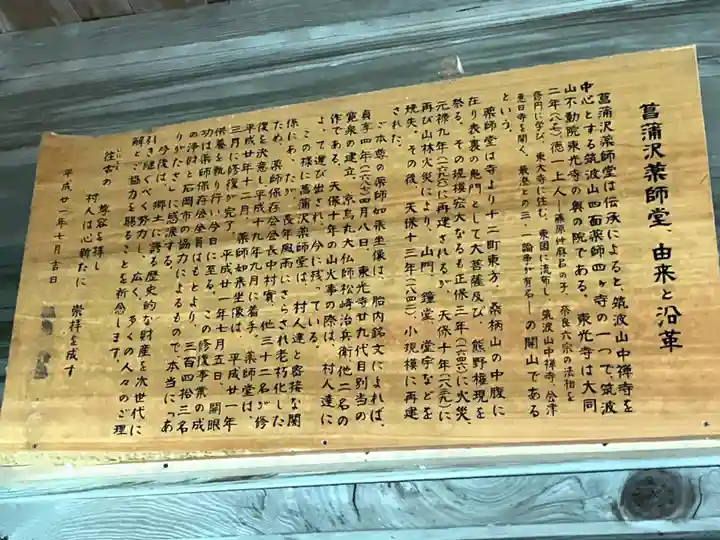 菖蒲沢薬師堂、由来と沿革
菖蒲沢薬師堂は伝承によると、筑波山中禅寺を
中心とする筑波山四面薬師四ヶ寺の一つで筑波
山不動院東光寺の奥の院である。東光寺は大同
二年(八〇七)徳一上人―藤原仲麻呂の子、奈良六宗の法相を
修円に学び、東大寺に住む、東国に流布し、筑波山中禅寺、会津
恵日寺を開く、最澄との三一論争が有名―の開山である
という。
薬師堂は寺より十二町東方、桑柄山の中腹に
在り表裏の鬼門として大菩薩及び、熊野権現を
祭る。その規模宏大なるも正保三年(一六四六)に火災、
元禄九年(一六九六)に再建されるが、天保十年(一八三九)に
再び山林火災により、山門、鐘堂、堂宇などを
焼失、その後、天保十三年(一八四二)小規模に再建
された。
ご本尊の薬師如来坐像は、胎内銘文によれば、
貞享四年(一六八七)四月八日、東光寺廿九代目別当の
寛泉の建立、京烏丸大仏師松崎治兵衛他二名の
作である。天保十年の山火事の際は、村人達に
よって運び出され、今に残っている。
この様に菖蒲沢薬師堂は、村人達と密接な関
係にあったが、長年風雨にさらされ老朽化した
ため、薬師保存会会長中村實、他三十二名が修
復を決意し平成十九年九月に着手、薬師堂は、
平成廿年十二月、薬師如来坐像は、平成廿一年
三月に修復が完了。平成廿一年七月五日、開眼
供養を執り行い今日に至る。この修復事業の成
功は薬師保存会会員はもとより、三百四拾三名
の浄財と石岡市の協力によるもので本当に「あ
りがたさ」に感涙する。
今後は、郷土に誇る歴史的な財産を次世代に
引き継ぐべく努力し、広く、多くの人々のご理
解とご協力を賜ることを祈念します。
往古の 尊容を拝し
村人は心新たに 崇拝を成す
平成廿一年七月吉日